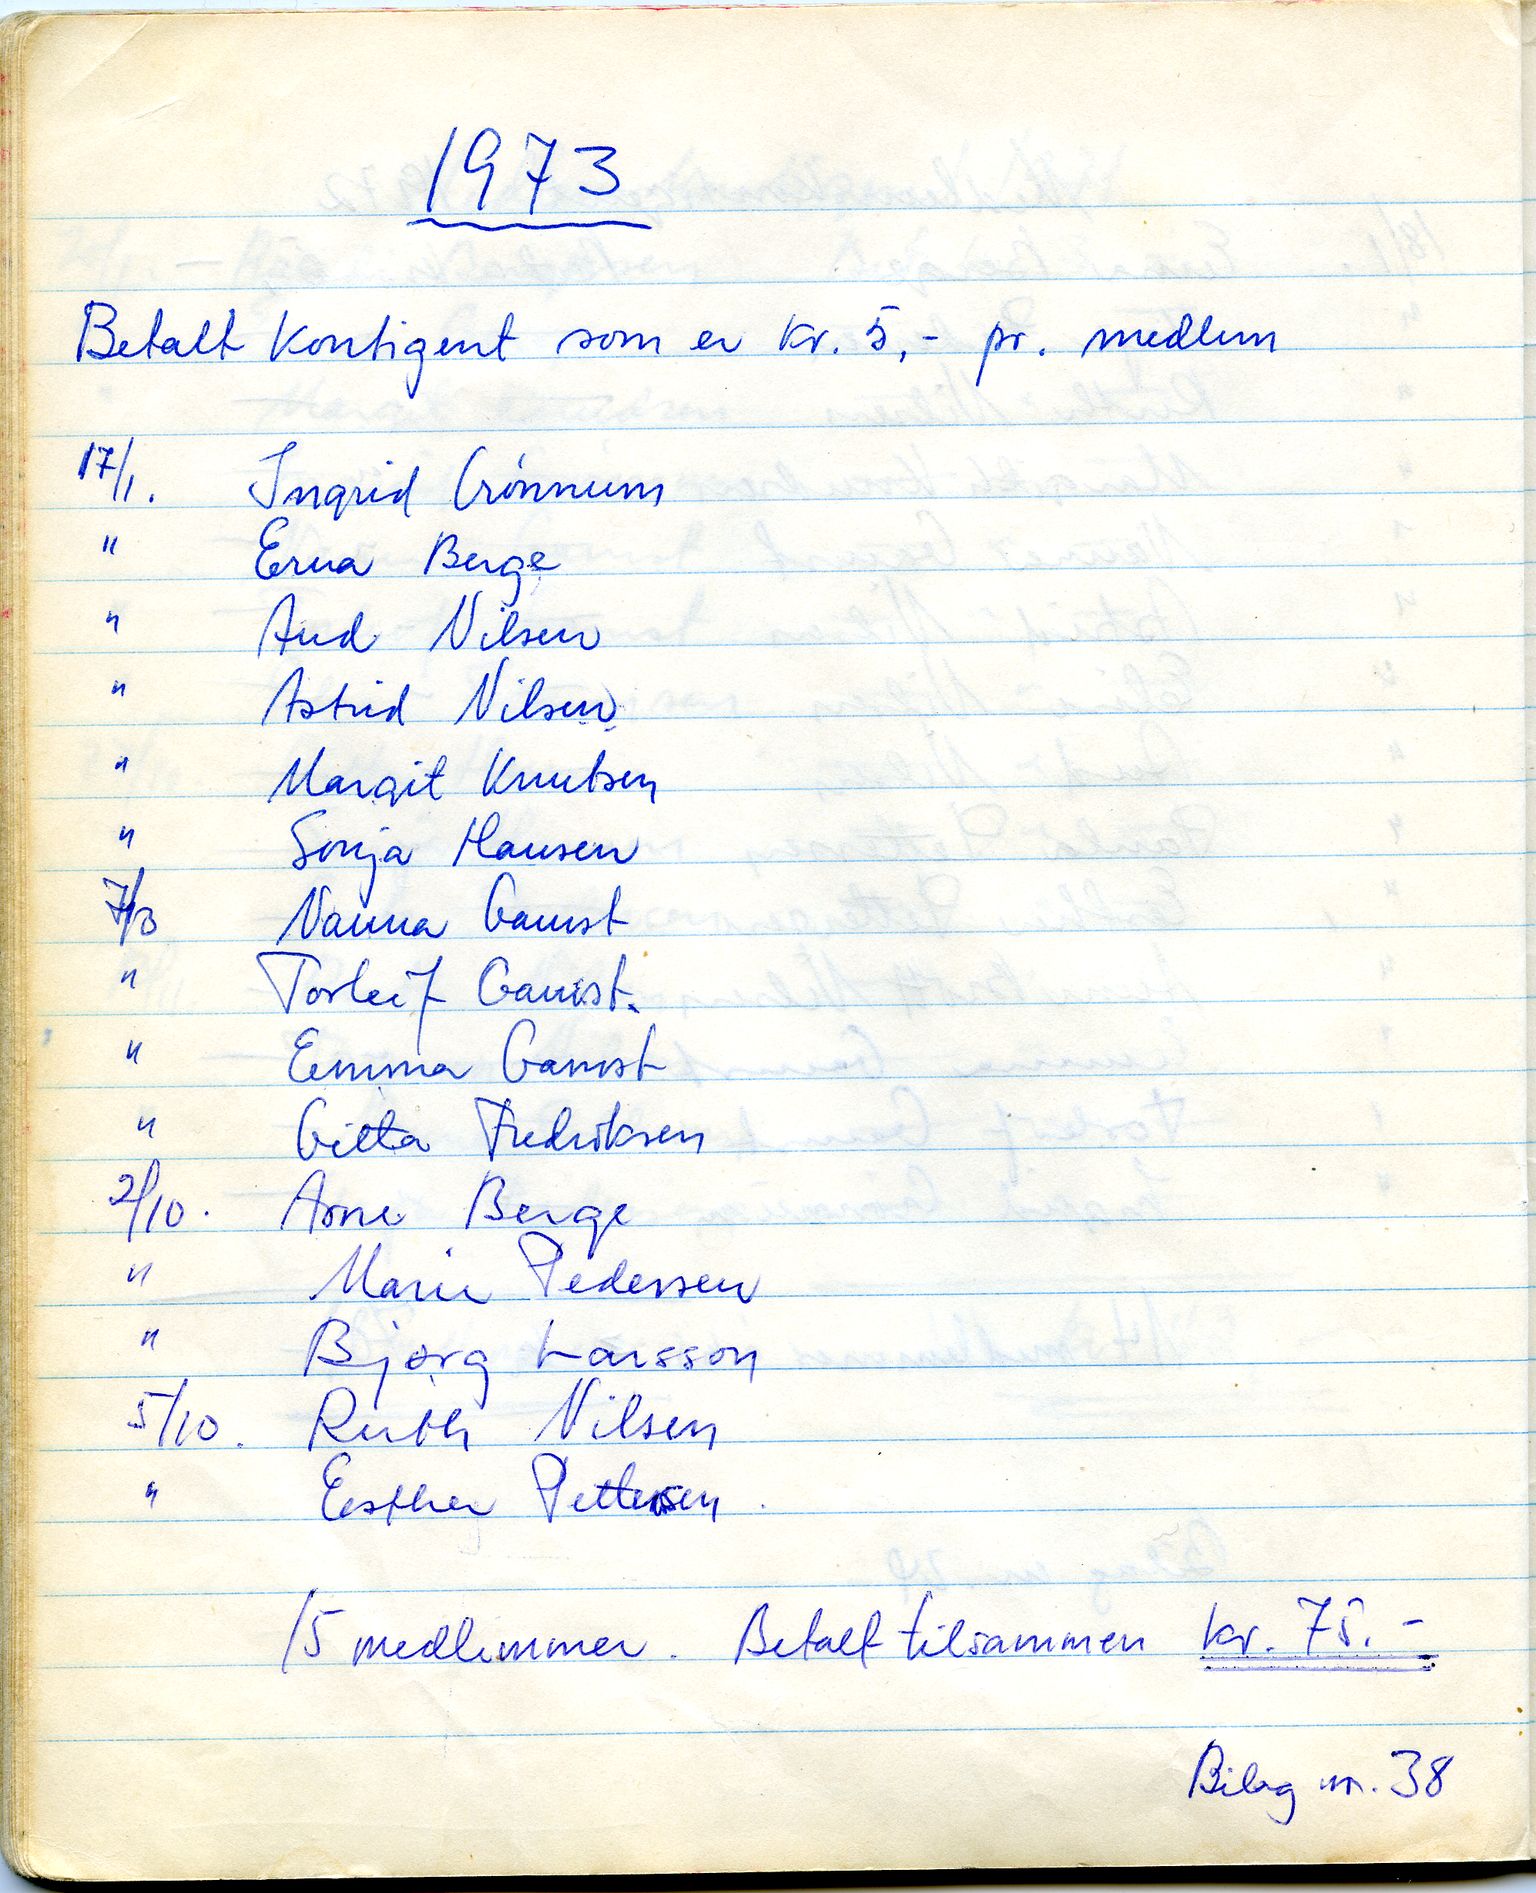 1973
Betalt kontigent som er kr. 5,- pr. medlem
17/1. Ingrid Grönnum
" Erna Berge
" Aud Nilsen
" Astrid Nilsen
" Margit Knutsen
" Sonja Hansen
7/3 Nanna Gamst
" Torleif Gamst.
" Emma Gamst
" Gitta Fredriksen
2/10. Arne Berge
" Marie Pedersen
" Bjørg Larsson
5/10. Ruth Nilsen
" Esther Pettersen.
15 medlemmer. Betalt tilsammen kr. 75.-
Bilag nr. 38